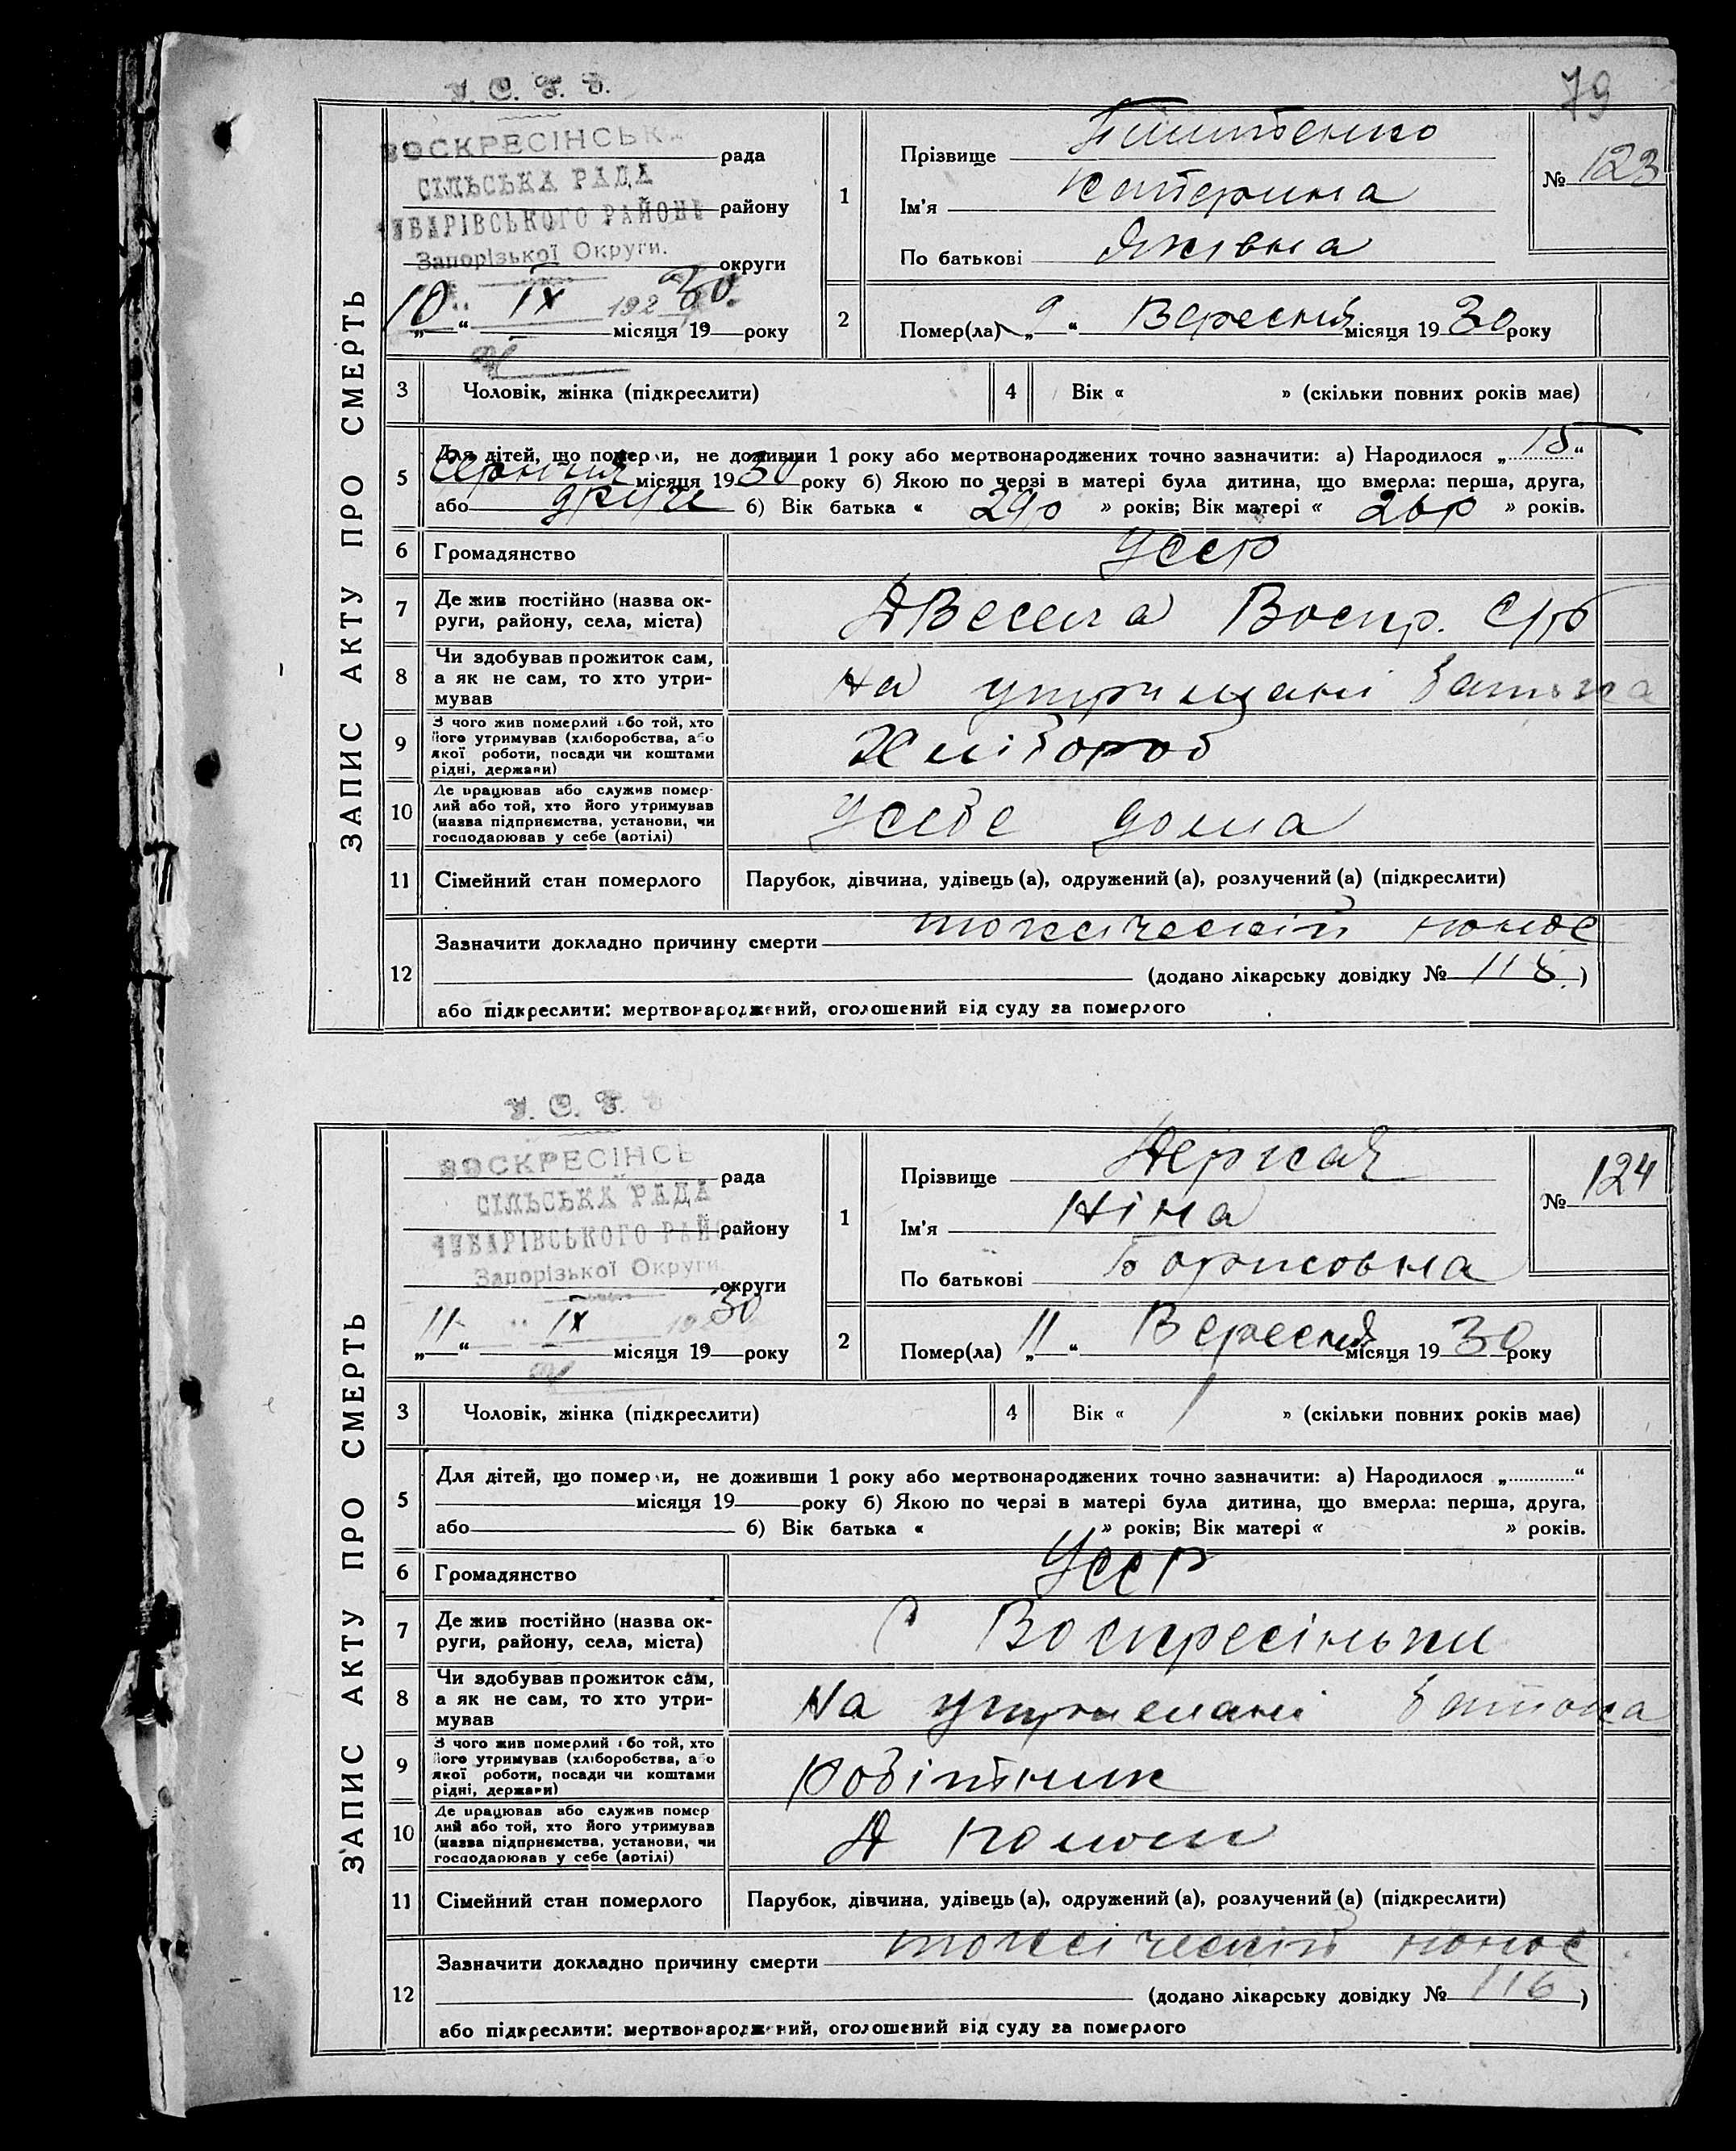 79
У. С. Р. Р.
ВОСКРЕСІНСЬК
СІЛЬСЬКА РАДА
ЧУБАРІВСЬКОГО РАЙОНУ
Запорізької Округи.
рада
району
округи
10 IX 192 30
„ “ місяця 19 року
ЗАПИС АКТУ ПРО СМЕРТЬ
1
Прізвище
Ім'я Катерина
По батькові Яківна
№ 123
2 Помер(ла) „9“ Вересня місяця 1930 року
3 Чоловік, жінка (підкреслити)
4 Вік « » (скільки повних років має)
5 Для дітей, що померли, не доживши 1 року або мертвонароджених точно зазначити: а) Народилося „15“
Серпня місяця 1930 року б) Якою по черзі в матері була дитина, що вмерла: перша, друга,
або друга б) Вік батька « 29р » років; Вік матері « 26р » років.
6 Громадянство УССР
7 Де жив постійно (назва ок-
руги, району, села, міста) Д Весела Воскр. С/р
8 Чи здобував прожиток сам,
а як не сам, то хто утри-
мував На утримані батька
9 З чого жив померлий або той, хто
його утримував (хліборобства, або
якої роботи, посади чи коштами
рідні, держави) Хлібороб
10 Де працював або служив помер-
лий або той, хто його утримував
(назва підприємства, установи, чи
господарював у себе (артілі) У себе дома
11 Сімейний стан померлого Парубок, дівчина, удівець (а), одружений (а), розлучений (а) (підкреслити)
12 Зазначити докладно причину смерти токсіческій понос
(додано лікарську довідку № 115)
або підкреслити: мертвонароджений, оголошений від суду за померлого
У. С. Р.
ВОСКРЕСІНСЬ
СІЛЬСЬКА РАДА
ЧУБАРІВСЬКОГО РАЙ
Запорізької Округи.
рада
району
округи
11 IX 30
„ “ місяця 19 року
ЗАПИС АКТУ ПРО СМЕРТЬ
1
Прізвище
Ім'я Ніна
По батькові Борисовна
№ 124
2 Помер(ла) „11“ Вересня місяця 1930 року
3 Чоловік, жінка (підкреслити)
4 Вік « 1 » (скільки повних років має)
5 Для дітей, що померли, не доживши 1 року або мертвонароджених точно зазначити: а) Народилося „ “
місяця 19 року б) Якою по черзі в матері була дитина, що вмерла: перша, друга,
або б) Вік батька « » років; Вік матері « » років.
6 Громадянство УССР
7 Де жив постійно (назва ок-
руги, району, села, міста) С Воскресіньки
8 Чи здобував прожиток сам,
а як не сам, то хто утри-
мував На утримані батька
9 З чого жив померлий або той, хто
його утримував (хліборобства, або
якої роботи, посади чи коштами
рідні, держави) Робітник
10 Де працював або служив помер-
лий або той, хто його утримував
(назва підприємства, установи, чи
господарював у себе (артілі)
11 Сімейний стан померлого Парубок, дівчина, удівець (а), одружений (а), розлучений (а) (підкреслити)
12 Зазначити докладно причину смерти токсіческій понос
(додано лікарську довідку № 116)
або підкреслити: мертвонароджений, оголошений від суду за померлого